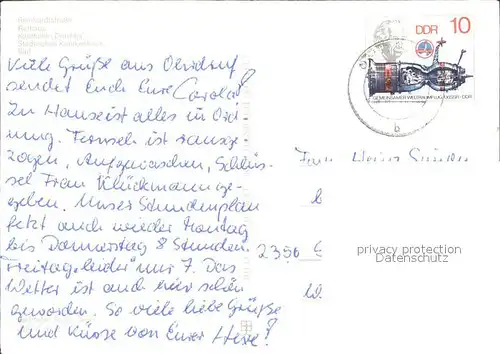 Viele Grüße aus Ohrdruf
sendet Euch Eure Carola!
Zu Hause ist alles in Ord-
nung. Fernseh ist rausge
zogen, Aufgewaschen, Schlüs-
sel Frau Klückmann ge-
geben. Unser Stundenplan
jetzt auch wieder Montag
bis Donnerstag 8 Stunden.
Freitag leider nur 7. Das
Wetter ist auch hier schön
geworden. So viele liebe Grüße
und Küsse von Eurer Hexe!
DDR 10
GEMEINSAMER WELTRAUMFLUG UDSSR-DDR
b
Frau Heinz
2356
privacy protection
Datenschutz